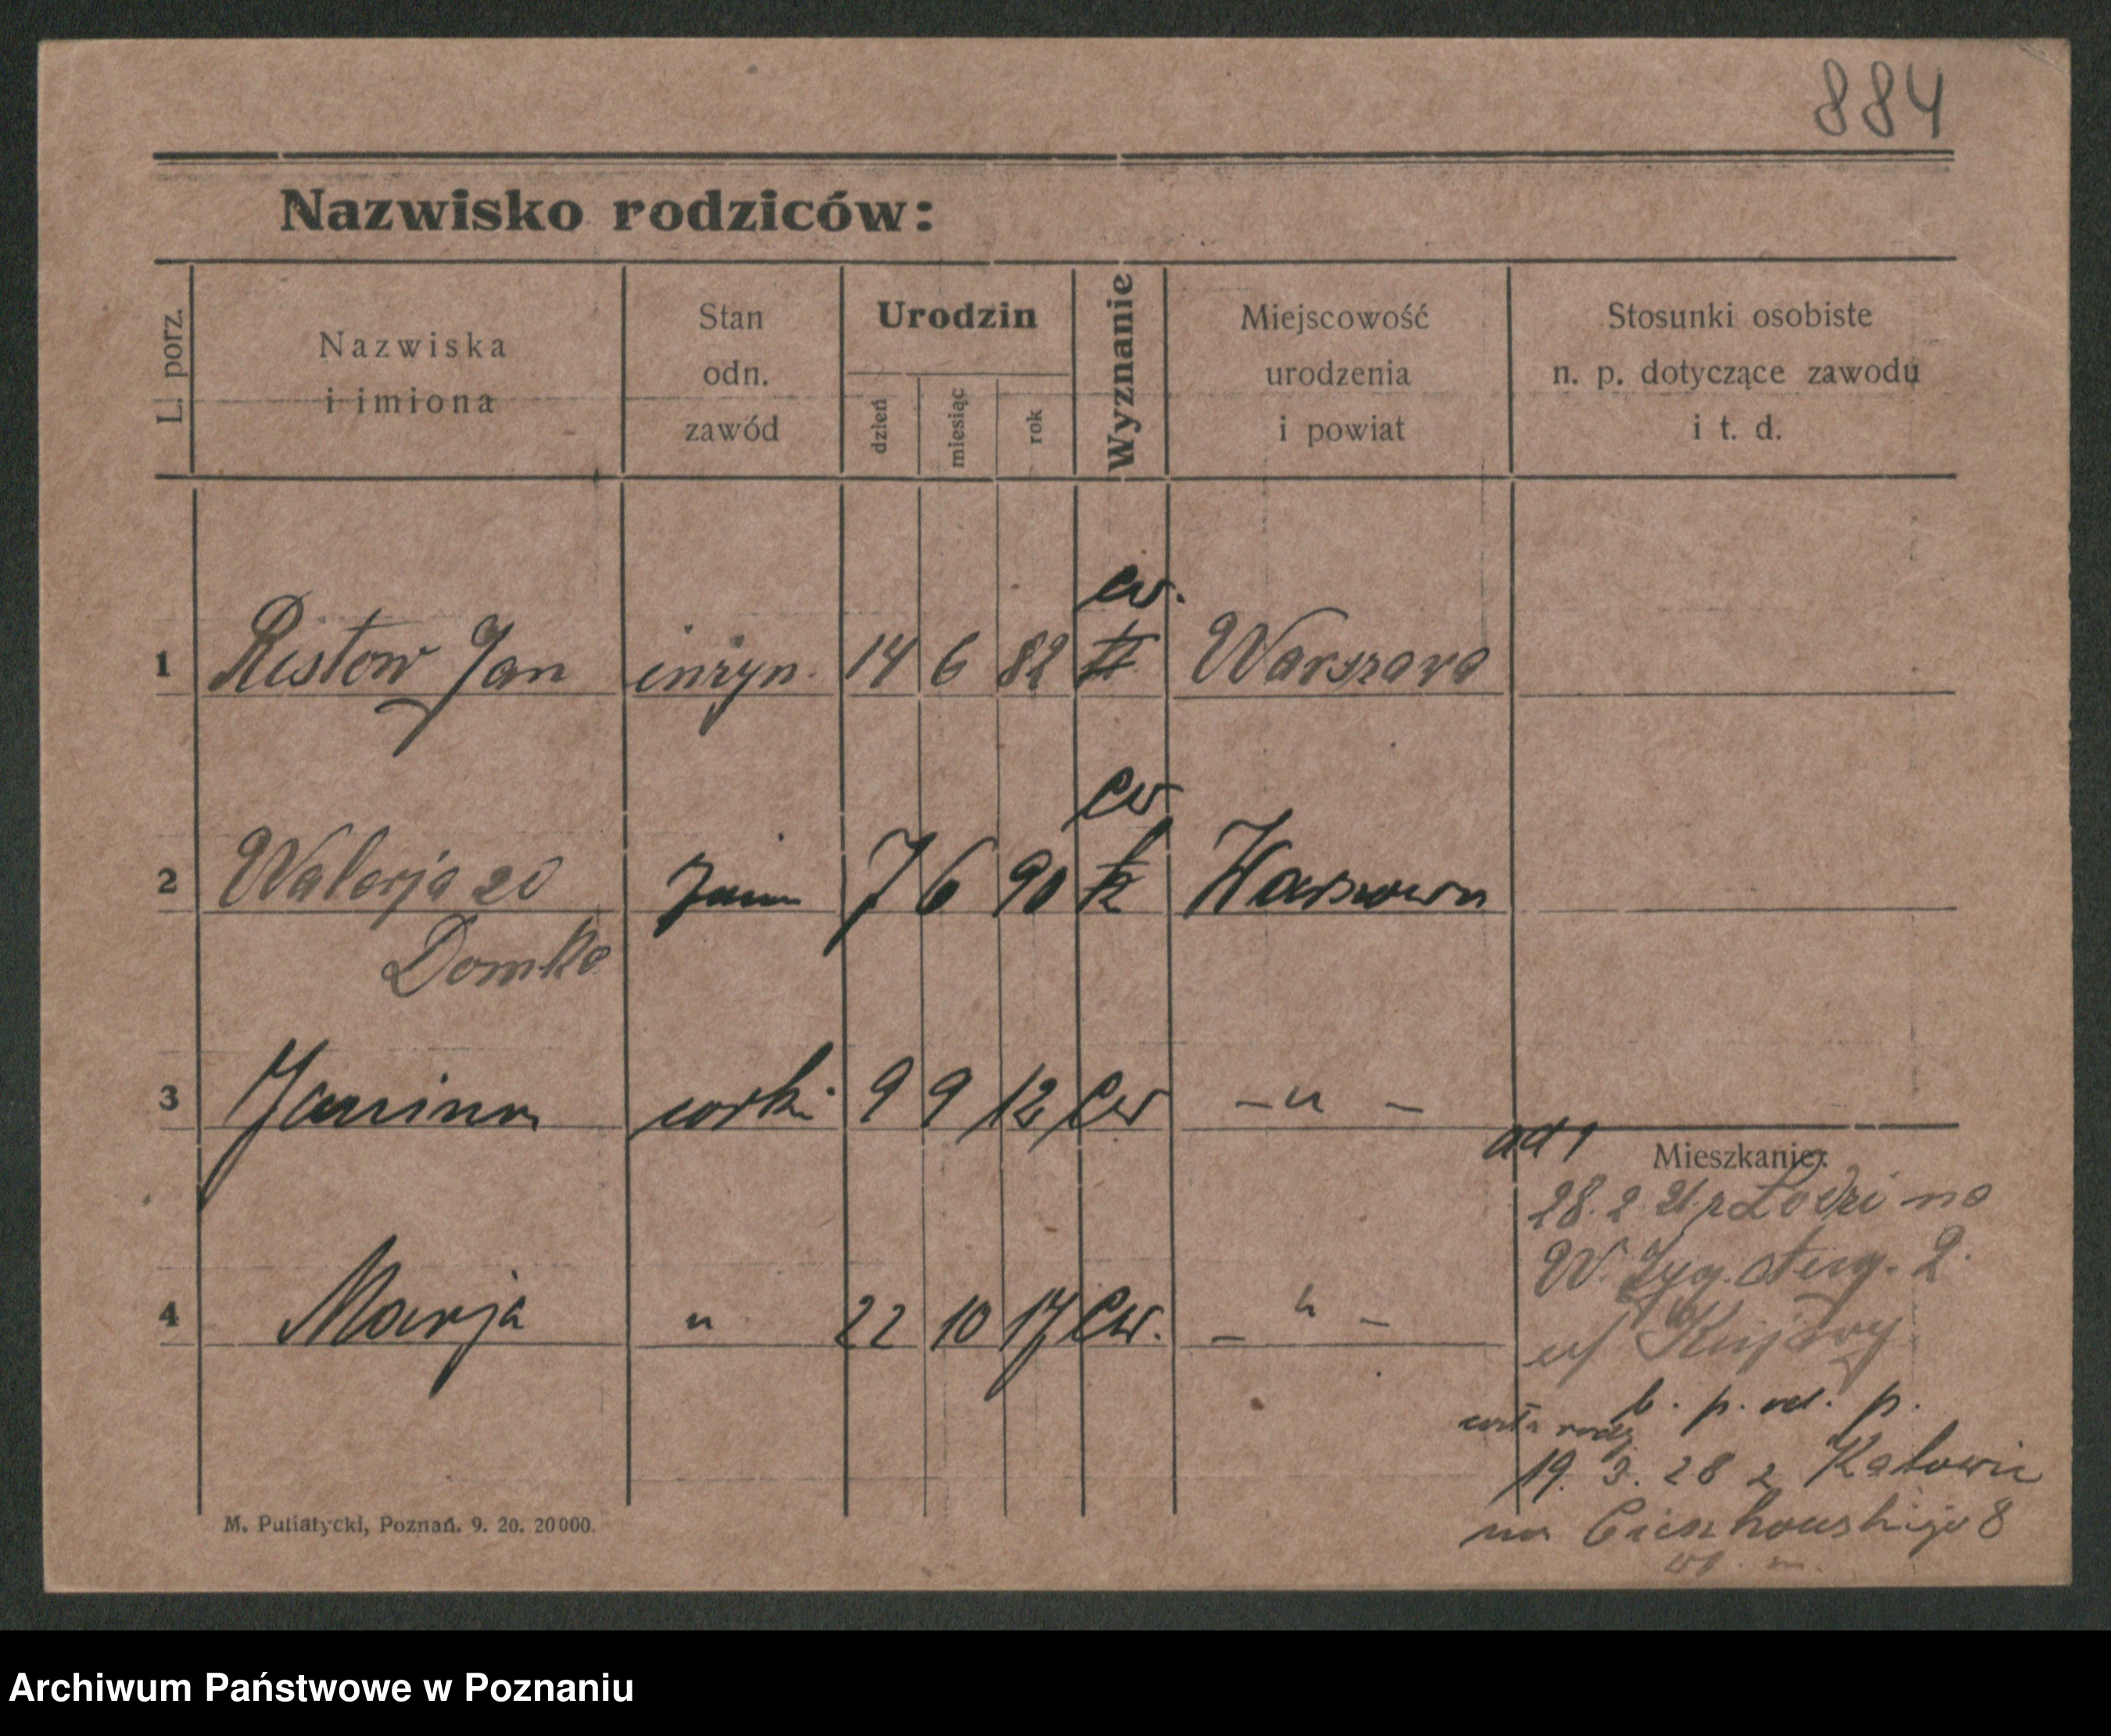 884
Nazwisko rodziców:
L. porz.
Nazwiska
i imiona
Stan
odn.
zawód
Urodzin
dzień
miesiąc
rok
Wyznanie
Miejscowość
urodzenia
i powiat
Stosunki osobiste
n. p. dotyczące zawodu
i t. d.
ew.
1 Ristow Jan inżyn. 14 6 82 k Warszawa
ew
2 Walerja zd 7 6 90 k Warszawa
Domke
3 Janina córki 9 9 12 ew — " —
4 Marja " 22 10 17 ew. — " —
ad 1
Mieszkanie:
28. 2. 21 z Łodzi na
W. Zyg. Aug. 2.
Kujawy
b. p. p.
19. 3. 28 z Katowic
na Cieszkowskiego 8
M. Putiatycki, Poznań. 9. 20. 20000.
Archiwum Państwowe w Poznaniu